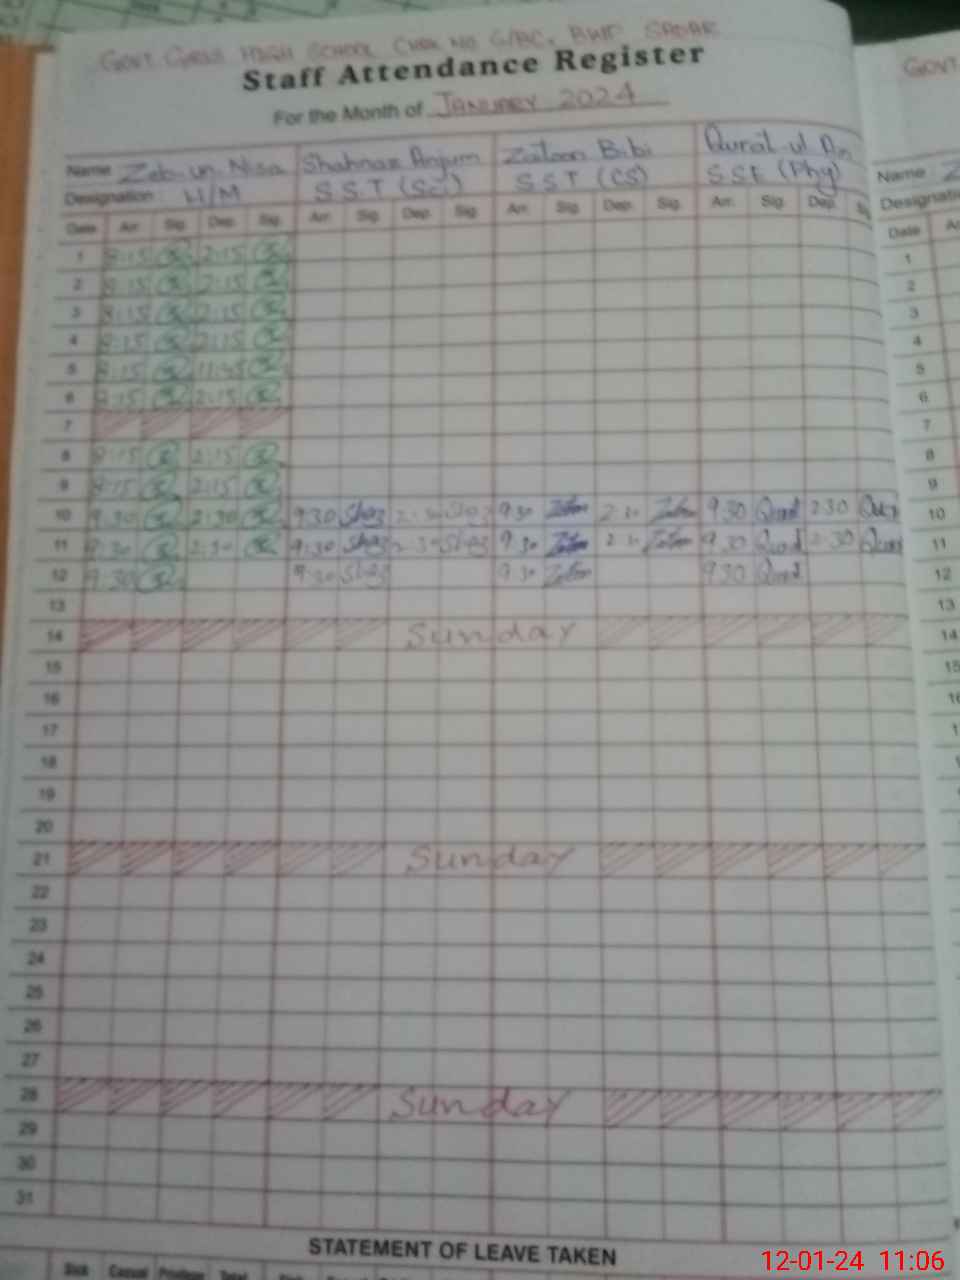 GOVT. GIRLS HIGH SCHOOL CHAK NO 6/BC, BWP SADAR
Staff Attendance Register
For the Month of JANUARY 2024
Name Zeb-un-Nisa Shahnaz Anjum Zatoon Bibi Qurat-ul-Ain
Designation: H/M S.S.T (Sci) S S T (CS) S S E (Phy)
Date Arr. Sig. Dep. Sig. Arr. Sig. Dep. Sig. Arr. Sig. Dep. Sig. Arr. Sig. Dep.
1 8:15 2:15
2 8:15 2:15
3 8:15 2:15
4 8:15 2:15
5 8:15 11:45
6 8:15 2:15
7
8 8:15 2:15
9 8:15 2:15
10 9:30 2:30 9:30 Shaz 2:30 Shaz 9:30 2:30 9:30 2:30
11 9:30 2:30 9:30 Shaz 2:30 Shaz 9:30 2:30 9:30 2:30
12 9:30 9:30 Shaz 9:30 9:30
13
14 Sunday
15
16
17
18
19
20
21 Sunday
22
23
24
25
26
27
28 Sunday
29
30
31
STATEMENT OF LEAVE TAKEN
Sick Casual Privilege Total
GOVT
Name
Date
1
2
3
4
5
6
7
8
9
10
11
12
13
14
15
12-01-24 11:06